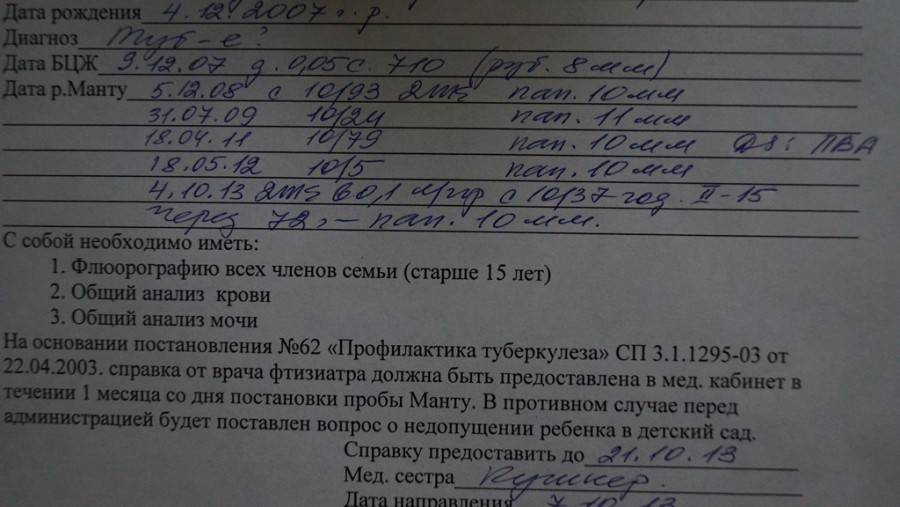 Дата рождения 4.12.2007 г.р.
Диагноз Туб-е?
Дата БЦЖ 9.12.07 д. 0,05 с. 710 (руб. 8 мм)
Дата р.Манту 5.12.08 с 10/93 2ТЕ пап. 10 мм
31.07.09 10/24 пап. 11 мм
18.04.11 10/79 пап. 10 мм DS: ПВА
18.05.12 10/5 пап. 10 мм
4.10.13 2ТЕ 0,1 с 10/37 год. II-15
через 72 – пап. 10 мм.
С собой необходимо иметь:
1. Флюорографию всех членов семьи (старше 15 лет)
2. Общий анализ крови
3. Общий анализ мочи
На основании постановления №62 «Профилактика туберкулеза» СП 3.1.1295-03 от
22.04.2003. справка от врача фтизиатра должна быть предоставлена в мед. кабинет в
течении 1 месяца со дня постановки пробы Манту. В противном случае перед
администрацией будет поставлен вопрос о недопущении ребенка в детский сад.
Справку предоставить до 21.10.13
Мед. сестра
Дата направления 7.10.13